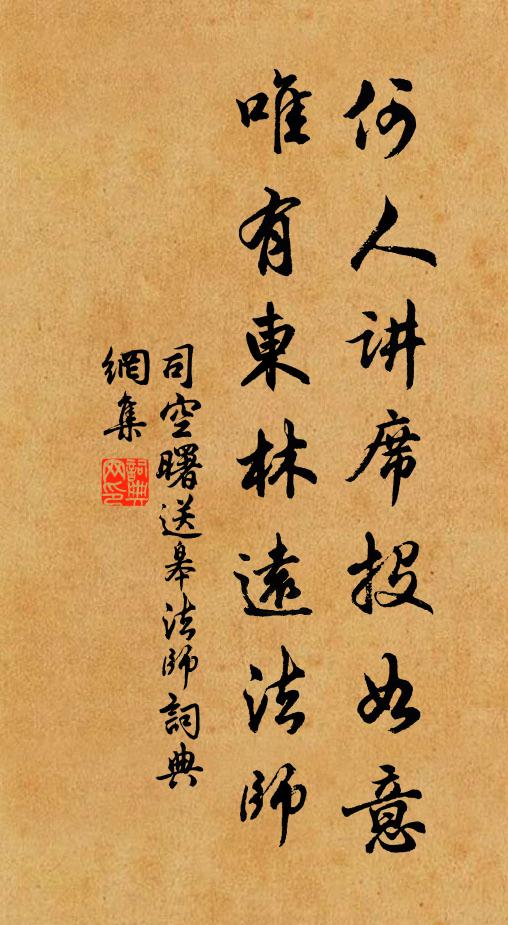 何人讲席投如意
唯有東林遠法師
司空曙送皋法师詞典
網集
詞典網印